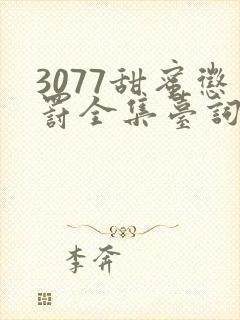 3077甜蜜懲
罰全集臺詞
李奔